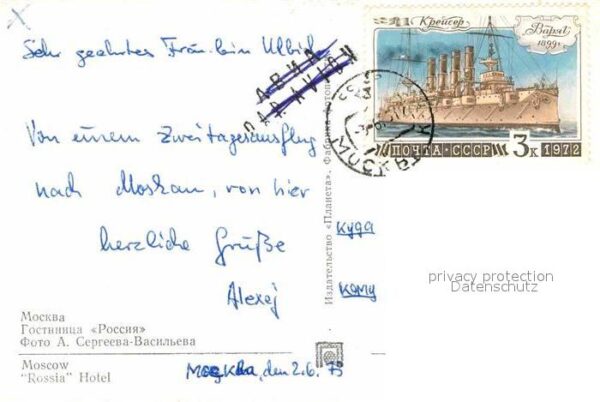 Крейсер
Варяг
1899г.
ПОЧТА·СССР
3к
1972
АВИА
PAR AVION
МОСКВА
Sehr geehrtes Fräulein Ullrich
Von einem Zweitagesausflug
nach Moskau, von hier
herzliche Grüße
Alexej
Куда
Кому
Издательство «Планета». Фабрика фотопе
privacy protection
Datenschutz
Москва
Гостиница «Россия»
Фото А. Сергеева-Васильева
Moscow
"Rossia" Hotel
Москва, den 2.6.73